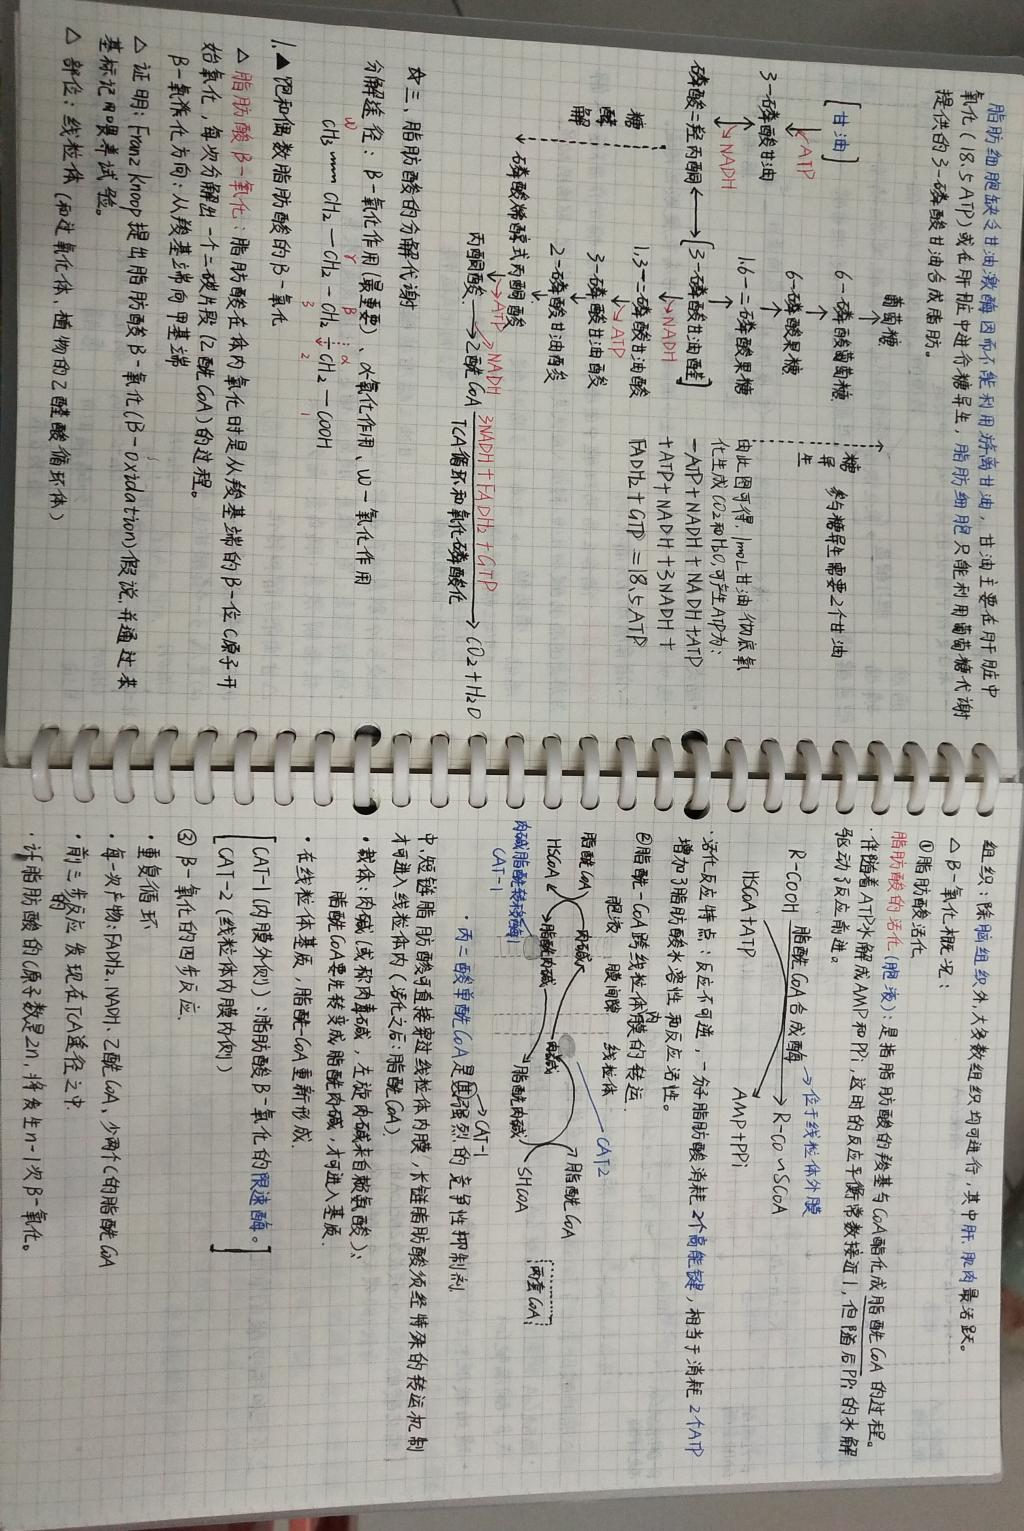 脂肪细胞缺乏甘油激酶因而不能利用游离甘油,甘油主要在肝脏中
氧化(18.5ATP)或在肝脏中进行糖异生,脂肪细胞只能利用葡萄糖代谢
提供的3-磷酸甘油合成脂肪。
[甘油]
ATP
3-磷酸甘油
NADH
磷酸二羟丙酮
葡萄糖
6-磷酸葡萄糖
6-磷酸果糖
1,6-二磷酸果糖
[3-磷酸甘油醛]
NADH
1,3-二磷酸甘油酸
ATP
3-磷酸甘油酸
2-磷酸甘油酸
磷酸烯醇式丙酮酸
ATP
糖酵解
糖异生
参与糖异生需要2个甘油
由此图可得,1mol甘油彻底氧
化生成CO2和H2O,可产生ATP为:
-ATP+NADH+NADH+ATP
+ATP+NADH+3NADH+
FADH2+GTP=18.5ATP
丙酮酸 NADH 乙酰CoA 3NADH+FADH2+GTP CO2+H2O
TCA循环和氧化磷酸化
三、脂肪酸的分解代谢
分解途径:β-氧化作用(最重要)、α-氧化作用、ω-氧化作用
ω γ β α
CH3 CH2-CH2-CH2-CH2-COOH
3 2 1
1.▲ 饱和偶数脂肪酸的β-氧化
△ 脂肪酸β-氧化:脂肪酸在体内氧化时是从羧基端的β-位C原子开
始氧化,每次分解出一个二碳片段(乙酰CoA)的过程。
β-氧化方向:从羧基端向甲基端
△ 证明:Franz Knoop提出脂肪酸β-氧化(β-oxidation)假说,并通过苯
基标记喂养试验。
△ 部位:线粒体(和过氧化体、植物的乙醛酸循环体)
组织:除脑组织外,大多数组织均可进行,其中肝、肌肉最活跃。
△ β-氧化概况:
①脂肪酸活化
脂肪酸的活化(胞液):是指脂肪酸的羧基与CoA酯化成脂酰CoA的过程。
·伴随着ATP水解成AMP和PPi,这时的反应平衡常数接近1,但随后PPi的水解
驱动了反应前进。
R-COOH 脂酰CoA合成酶 → 位于线粒体外膜 R-CO~SCoA
HSCoA+ATP AMP+PPi
·活化反应特点:反应不可逆,一分子脂肪酸消耗2个高能键,相当于消耗2个ATP
增加了脂肪酸水溶性和反应活性。
②脂酰-CoA跨线粒体内膜的转运
胞液 膜间隙 线粒体
脂酰CoA 肉碱 肉碱 脂酰CoA
HSCoA 脂酰肉碱 脂酰肉碱 SHCoA
肉碱脂酰转移酶I
CAT-1
CAT2
丙二酸单酰CoA是其强烈的竞争性抑制剂
CAT-1
中、短链脂肪酸可直接穿过线粒体内膜,长链脂肪酸须经特殊的转运机制
才可进入线粒体内(活化之后:脂酰CoA)
·载体:肉碱(或称肉毒碱,左旋肉碱来自赖氨酸):
脂酰CoA要先转变成脂酰肉碱,才可进入基质.
·在线粒体基质,脂酰-CoA重新形成.
[CAT-1(内膜外侧):脂肪酸β-氧化的限速酶。
CAT-2(线粒体内膜内侧)]
③ β-氧化的四步反应.
·重复循环
·每一次产物:FADH2、NADH、乙酰CoA、少两个C的脂酰CoA
·前三步反应发现在TCA途径之中
·脂肪酸的C原子数是2n,将发生n-1次β-氧化。